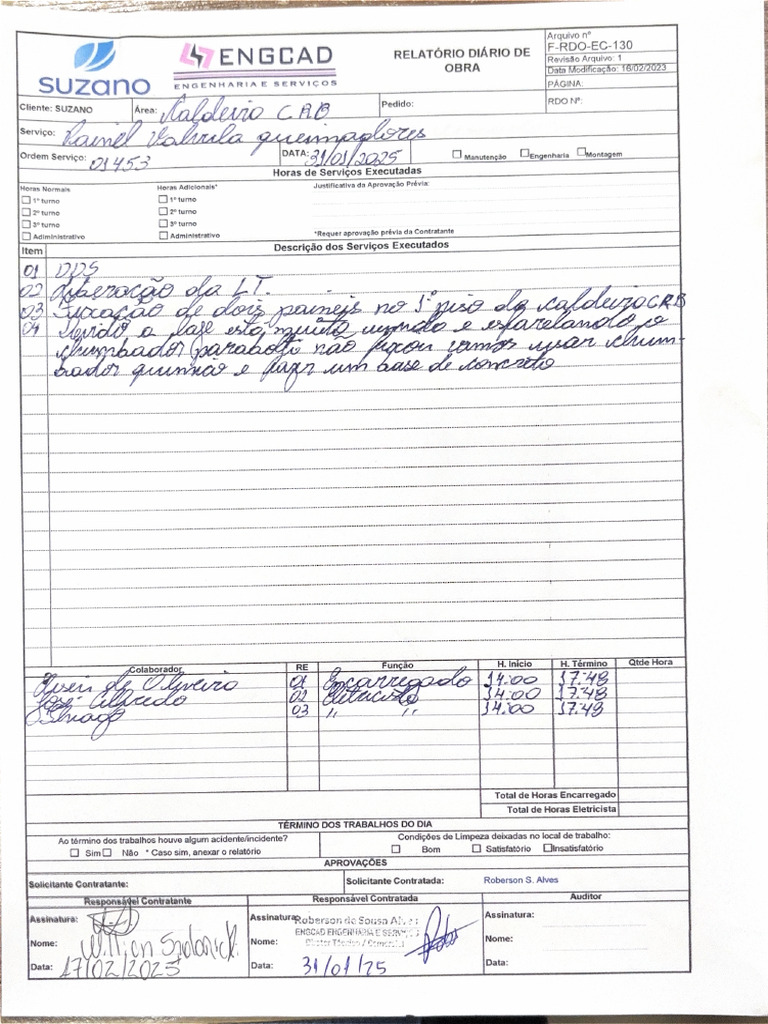 suzano
ENGCAD
ENGENHARIA E SERVIÇOS
RELATÓRIO DIÁRIO DE OBRA
Arquivo nº
F-RDO-EC-130
Revisão Arquivo: 1
Data Modificação: 16/02/2023
PÁGINA:
RDO Nº:
Cliente: SUZANO Área: Caldeira CRB Pedido:
Serviço: Painel Valvula queimadores
Ordem Serviço: 01453 DATA: 31/01/2025 Manutenção Engenharia Montagem
Horas de Serviços Executadas
Horas Normais Horas Adicionais* Justificativa da Aprovação Prévia:
1º turno 1º turno
2º turno 2º turno
3º turno 3º turno
Administrativo Administrativo *Requer aprovação prévia da Contratante
Item Descrição dos Serviços Executados
01 DDS
02 Liberação da LT.
03 Fixação de dois paineis no 1º piso da caldeira CRB
04 Devido a base está muito e esfarelando o
chumbador (parabolt) não fixou vamos usar chum-
bador quimico e fazer um base de concreto
Colaborador RE Função H. Início H. Término Qtde Hora
de Oliveira 01 Encarregado 14:00 17:48
José Alfredo 02 Eletricista 14:00 17:48
Thiago 03 " " 14:00 17:48
Total de Horas Encarregado
Total de Horas Eletricista
TÉRMINO DOS TRABALHOS DO DIA
Ao término dos trabalhos houve algum acidente/incidente? Condições de Limpeza deixadas no local de trabalho:
Sim Não * Caso sim, anexar o relatório Bom Satisfatório Insatisfatório
APROVAÇÕES
Solicitante Contratante: Solicitante Contratada: Roberson S. Alves
Responsável Contratante Responsável Contratada Auditor
Assinatura: Assinatura: Roberson de Sousa Alves Assinatura:
ENGCAD ENGENHARIA E SERVIÇOS
Nome: Nome: Nome:
Data: 17/02/2025 Data: 31/01/25 Data: